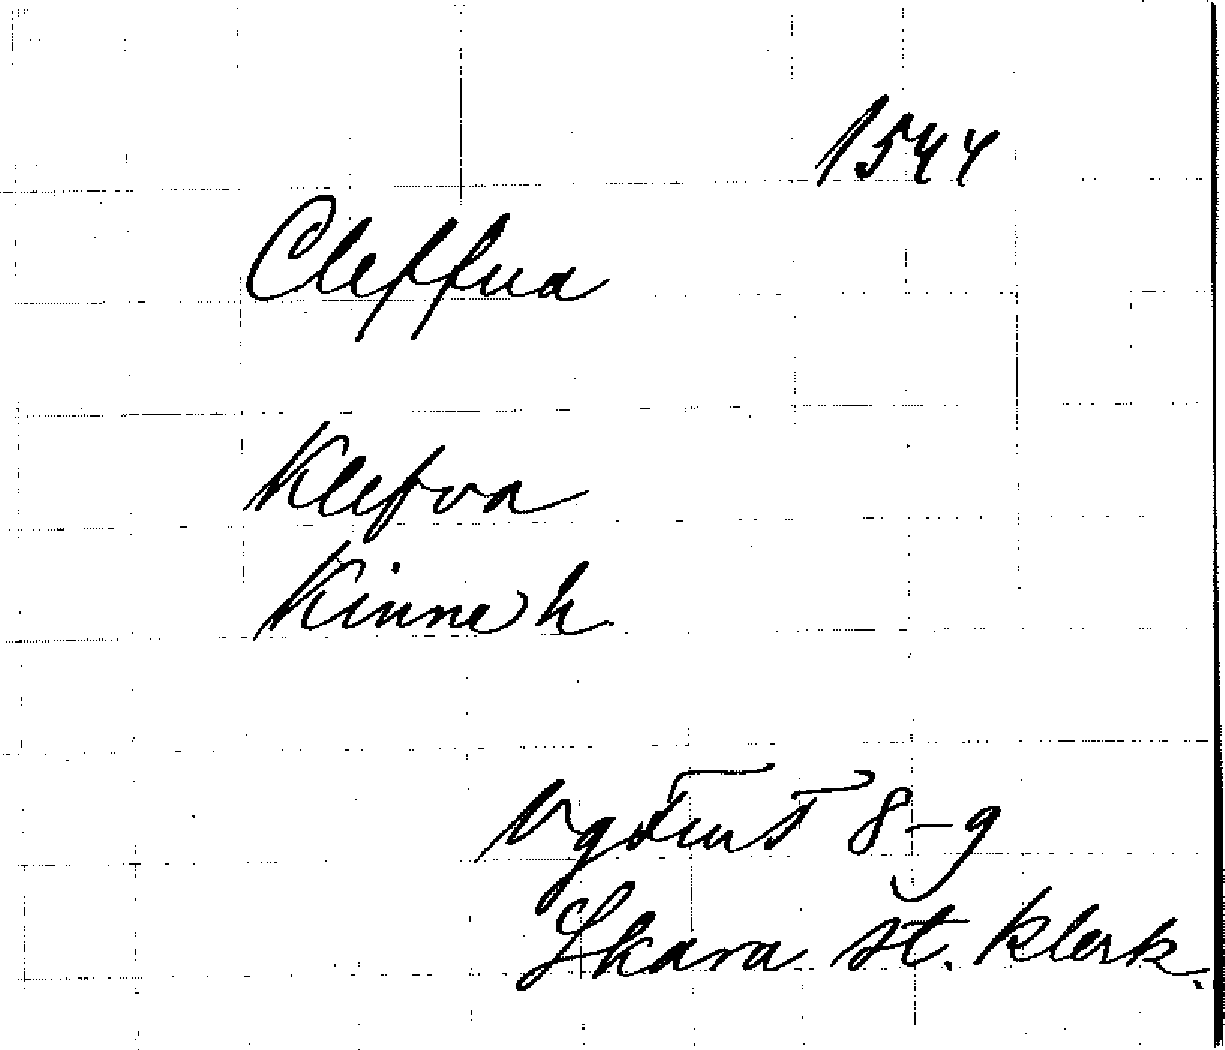 1544
Cleffua
Klefva
Kinne h.
Vgötus 8-9
Skara st. klerk.